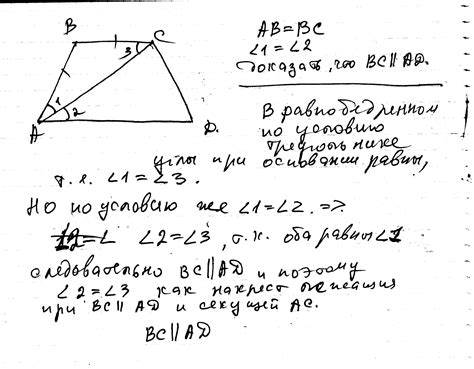 B
C
3
1
2
A
D.
AB=BC
∠1=∠2
доказать, что BC∥AD.
В равнобедренном
по условию
треугольнике
углы при основании равны,
т.е. ∠1=∠3.
Но по условию же ∠1=∠2. =>
∠2=∠3, т.к. оба равны ∠1
следовательно BC∥AD и поэтому
∠2=∠3 как накрест лежащие
при BC∥AD и секущей AC.
BC∥AD